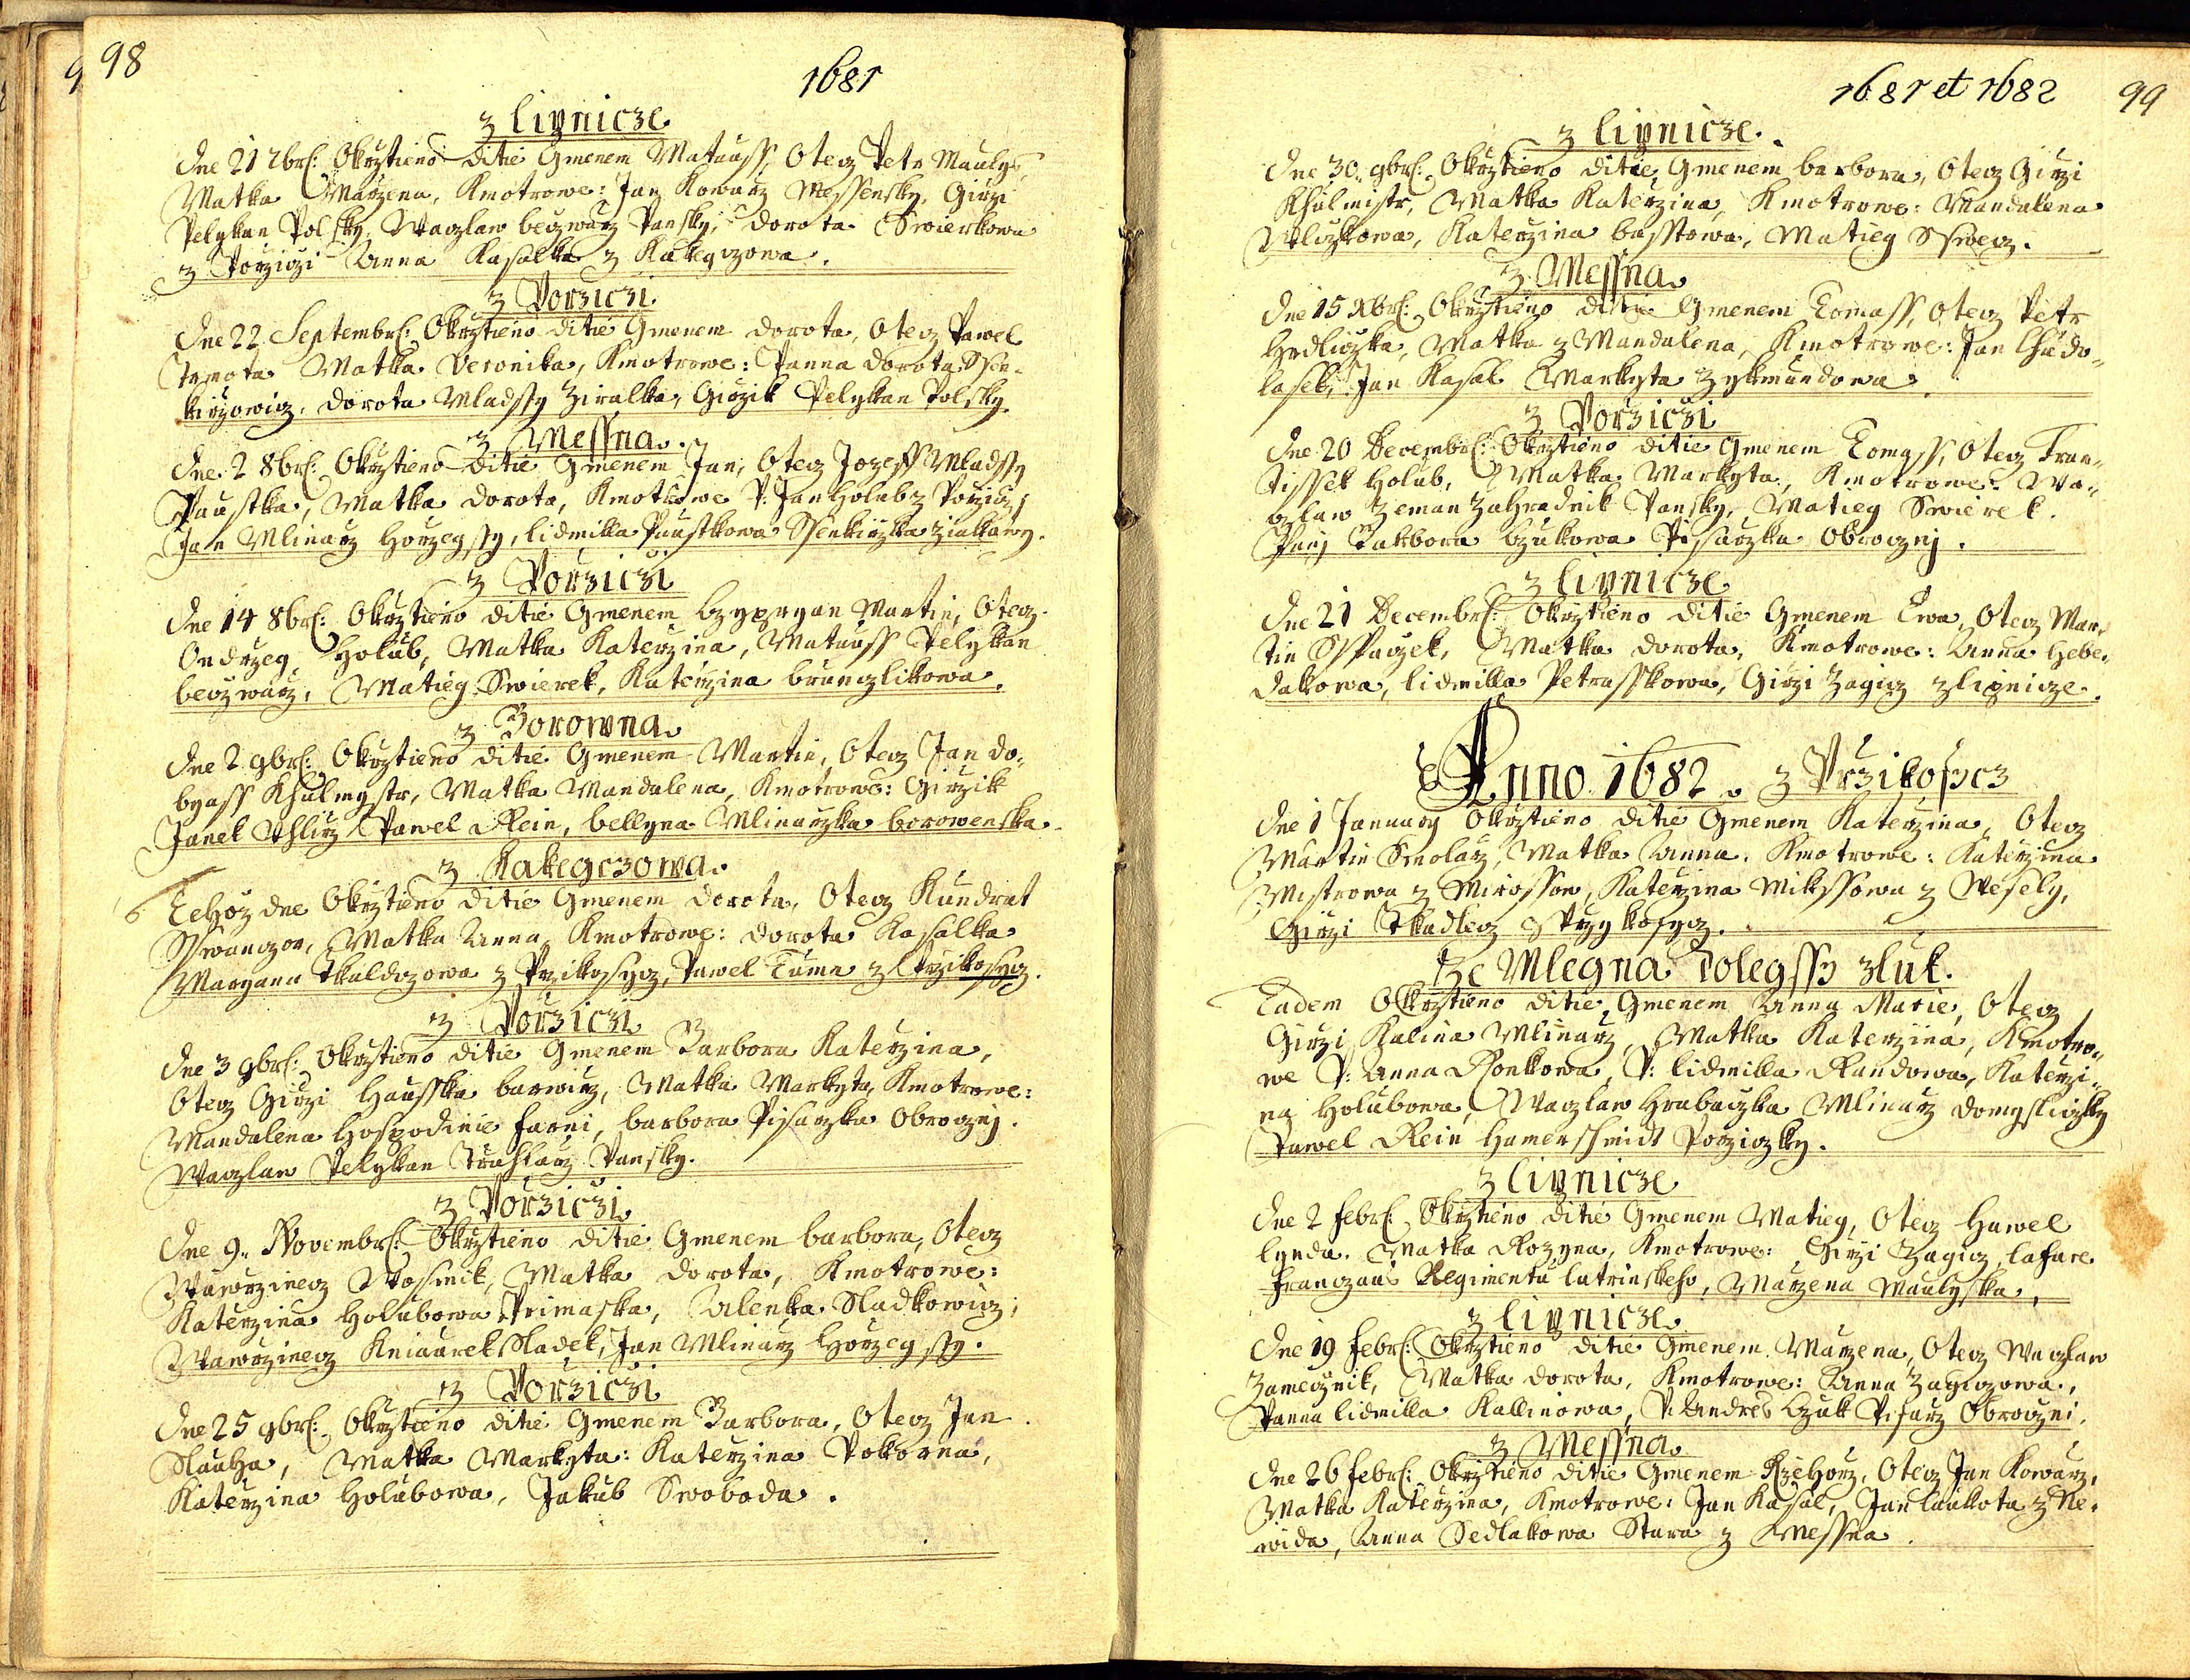 98
1681
z lipnicze
Dne 21 7brj: Okrztieno Ditie Gmenem Matauss, Otecz Petr Maulys,
Matka Marzena, Kmotrowe: Jan Kowarz Messensky, Girzi
Pelykan Polsky, Waczlaw beczwarz Pansky, Dorota Swierkowa
z Porziczi Anna Kasalka z Kakegczowa.
z Porziczi
Dne 22 Septembrj: Okrztieno Ditie Gmenem Dorota, Otecz Pawel
Matka Veronika, Kmotrowe: Panna Dorota Ssen-
kirzowicz, Dorota Mladssy Ziralka, Girzik Pelykan Polsky.
z Messna.
Dne 2 8brj: Okrztieno Ditie Gmenem Jan, Otecz Jozeff Mladssy
Paustka, Matka Dorota, Kmotrowe P: Jan Holub z Porzicz,
Jan Mlinarz Horzegssy, lidmilla Paustkowa Ssenkirzka
z Porziczi
Dne 14 8brj: Okrztieno Ditie Gmenem Czypryan Martin, Otecz
Ondrzeg Holub, Matka Katerzina, Matauss Pelykan
beczwarz, Matieg Swierek, Katerzina brunczlikowa.
z Borowna.
Dne 2 9brj: Okrztieno Ditie Gmenem Martin, Otecz Jan Do-
byass Khulmystr, Matka Mandalena, Kmotrowe: Girzik
Janek Vhlirz Pawel Rein, bellyna Mlinarzka borowenska.
z Kakegczowa.
Tehoz dne Okrztieno Ditie Gmenem Dorota, Otecz Kundrat
Sswanczar, Matka Anna, Kmotrowe: Dorota Kasalka
Maryana Tkaldczowa z Przikosycz, Pawel Tuma z Przikosycz.
z Porziczi
Dne 3 9brj: Okrztieno Ditie Gmenem Barbora Katerzina,
Otecz Girzi Hausska barwirz, Matka Markyta, Kmotrowe:
Mandalena Hospodinie farni, barbora Pisarzka Obrocznj.
Waczlaw Pelykan Truhlarz Pansky.
z Porziczi
Dne 9. Novembrj: Okrztieno Ditie Gmenem barbora, Otecz
Wawrzinecz Wosmik, Matka Dorota, Kmotrowe:
Katerzina Holubowa Primaska, Alenka Sladkowicz,
Wawrzinecz Kniaurek Sladek, Jan Mlinarz Horzegssy.
z Porziczi
Dne 25 9brj: Okrztieno Ditie Gmenem Barbora, Otecz Jan
Slauha, Matka Markyta: Katerzina Pokorna,
Katerzina Holubowa, Jakub Swoboda.
1681 et 1682
99
z lipnicze.
Dne 30. 9brj: Okrztieno Ditie Gmenem barbora, Otecz Girzi
Khulmistr, Matka Katerzina, Kmotrowe: Mandalena
Katerzina basstowa, Matieg Sswecz.
z Messna.
Dne 15 Xbrj: Okrztieno Ditie Gmenem Tomass, Otecz Petr
Hrdliczka, Matka Mandalena, Kmotrowe: Jan Chudo-
lasek, Jan Kasal Markyta Zykmundowa.
z Porziczi
Dne 20 Decembrj: Okrztieno Ditie Gmenem Tomass, Otecz Fran-
tissek Holub, Matka Markyta, Kmotrowe: Wa-
czlaw Zeman Zahradnik Pansky, Matieg Swierek.
Panj barbora Czukowa Pisarzka Obrocznj.
z lipnicze
Dne 21 Decembrj: Okrztieno Ditie Gmenem Ewa, Otecz Mar-
tin Sspaczek, Matka Dorota, Kmotrowe: Anna Hebe-
dakowa, lidmilla Petrasskowa, Girzi Zagicz z lipnicze.
Anno 1682. z Przikosycz
Dne 1 January Okrztieno Ditie Gmenem Katerzina, Otecz
Martin Smolarz, Matka Anna, Kmotrowe: Katerzina
Mistrowa z Mirossow, Katerzina Mikssowa z Wesely,
Girzi Tkadlecz z Przykosycz.
Ze Mlegna Dolegssy zluk.
Eadem Okrztieno Ditie Gmenem Anna Marie, Otecz
Girzi Kalina Mlinarz, Matka Katerzina, Kmotro-
we P: Anna Ronkowa, P: lidmilla Randowa, Katerzi-
na Holubowa, Waczlaw Hrabaczka Mlinarz Domysliczky
Pawel Rein Hamerschmidt Porziczky.
z lipnicze
Dne 2 febrj: Okrztieno Ditie Gmenem Matieg, Otecz Hawel
lynda. Matka Rozyna, Kmotrowe: Girzi Zagicz, lafare
Franczaus Regimentu latrinskeho, Marzena Maulyska.
z lipnicze.
Dne 19 febrj: Okrztieno Ditie Gmenem Marzena, Otecz Waczlaw
Zamecznik, Matka Dorota, Kmotrowe: Anna Zagiczowa,
Panna lidmilla Kallinowa, P: Andres Czuk Pisarz Obroczni.
z Messna.
Dne 26 febrj: Okrztieno Ditie Gmenem Rzehorz, Otecz Jan Kowarz,
Matka Katerzina, Kmotrowe: Jan Kasal, Jan laukota z Ne-
wida, Anna Sedlakowa Stara z Messna.